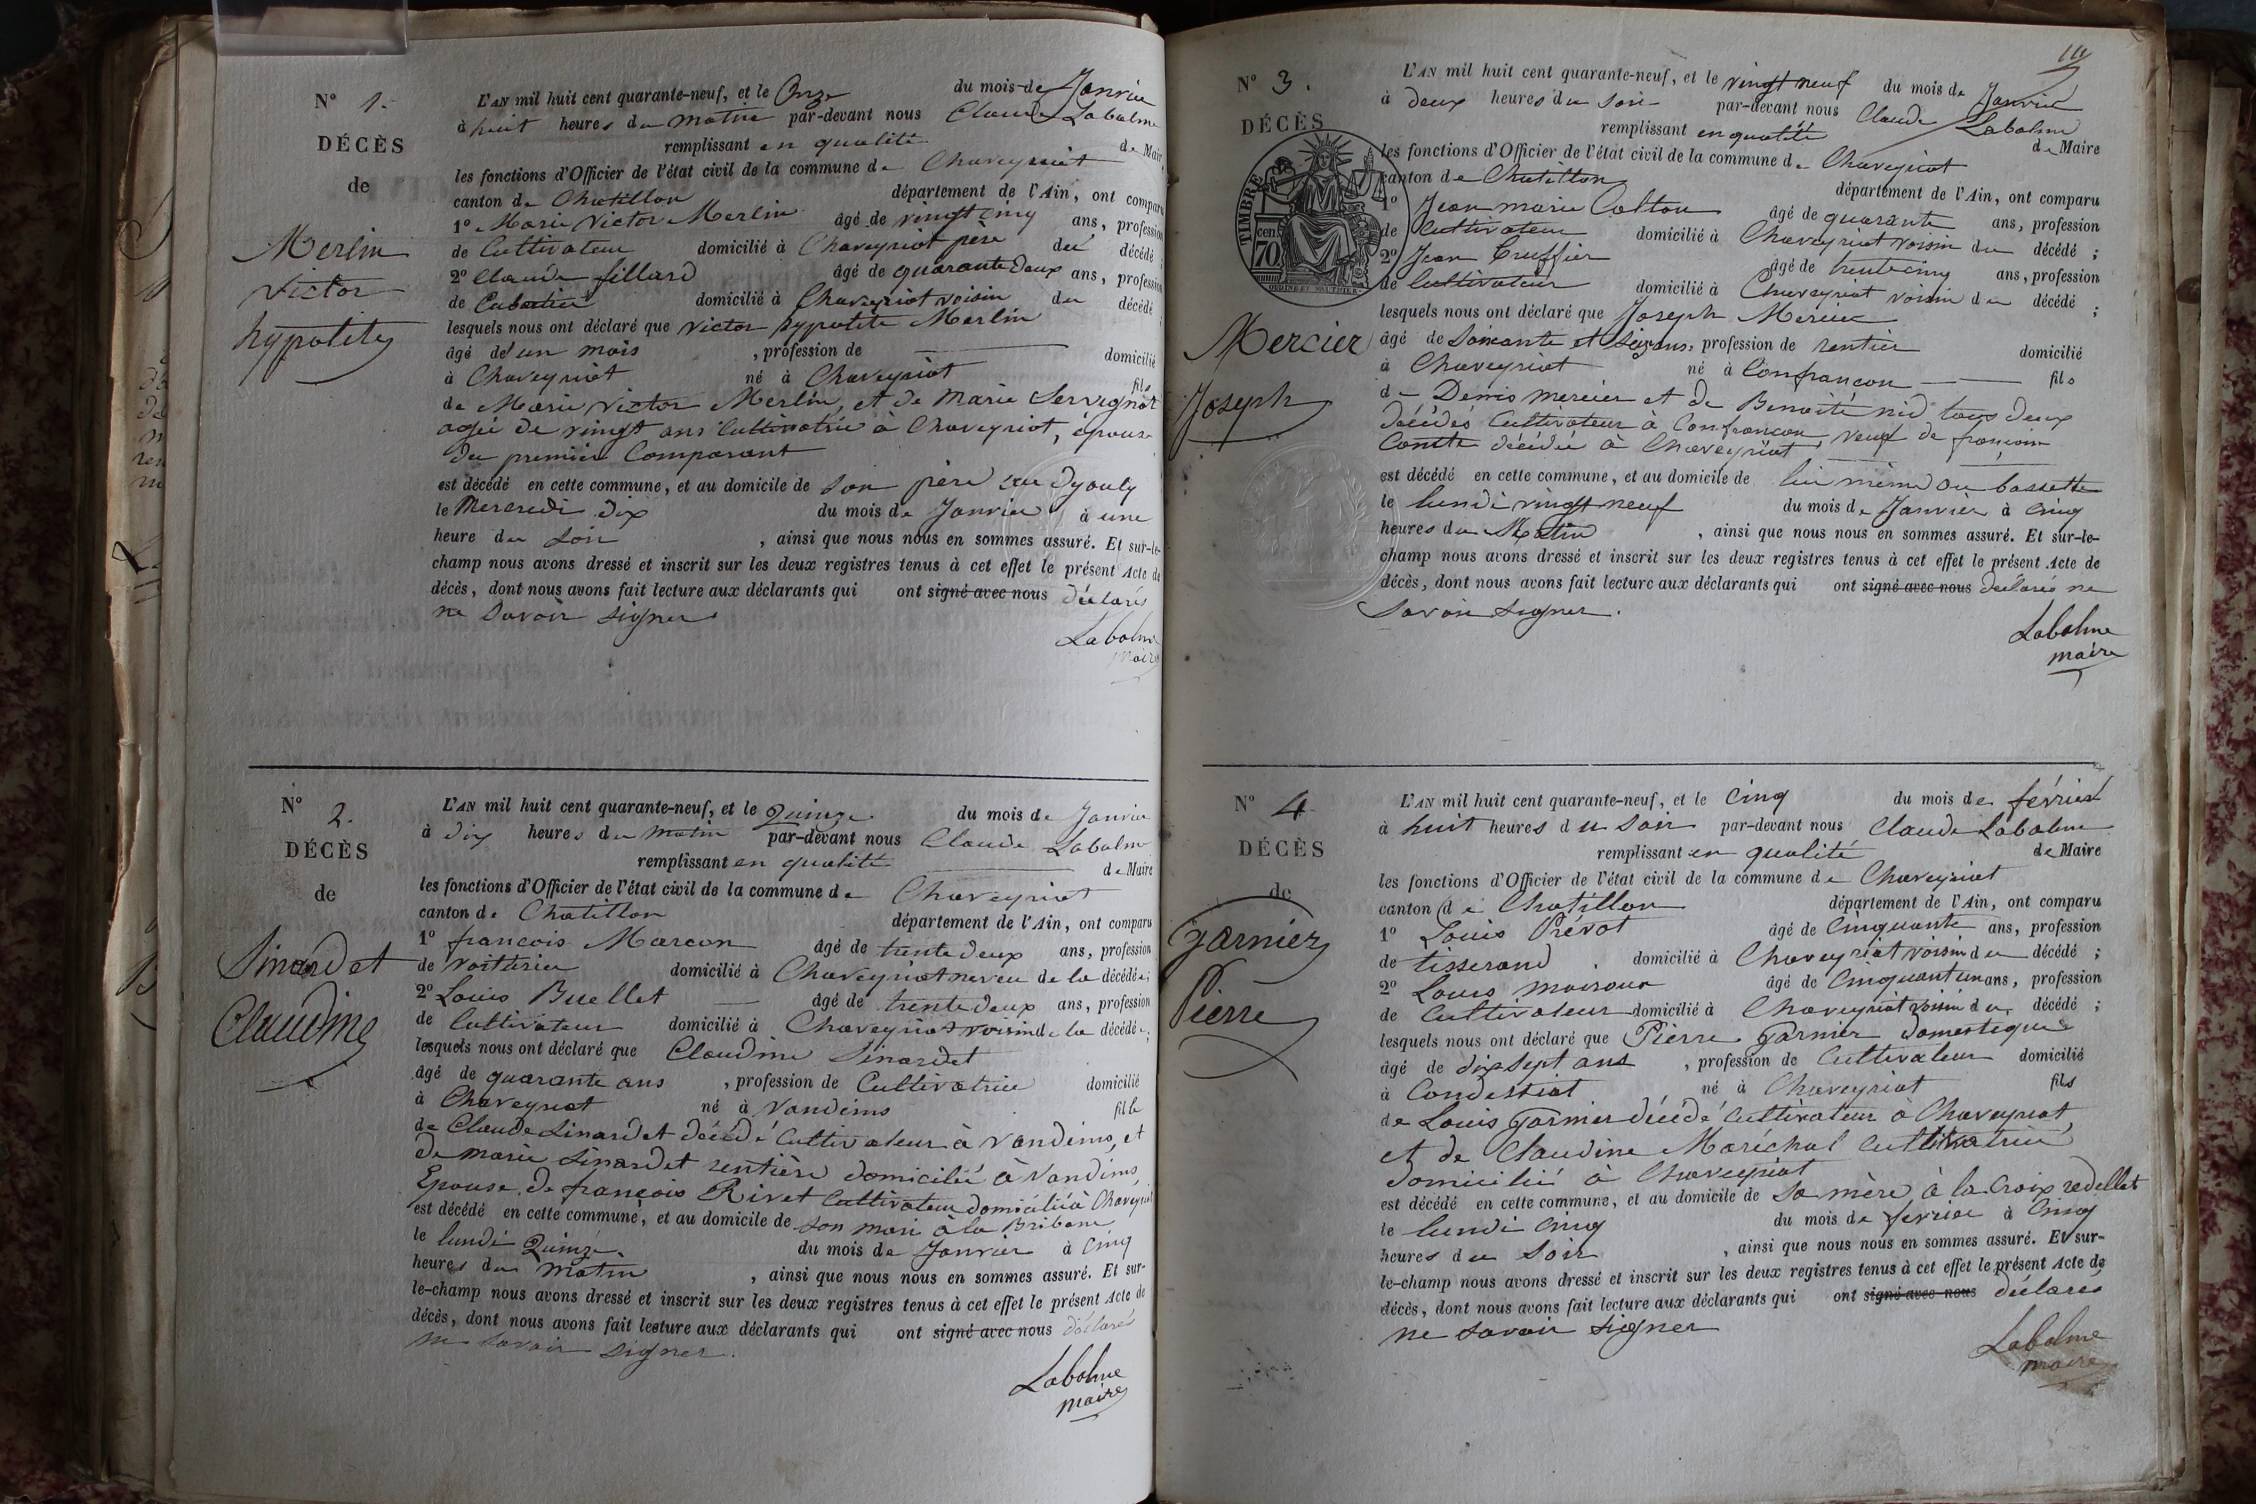 N° 1.
DÉCÈS
de
Merlin
Victor
hypolite
L'AN mil huit cent quarante-neuf, et le Onze du mois de Janvier
à huit heures du matin par-devant nous Claude Labalme
remplissant en qualité de Maire
les fonctions d'Officier de l'état civil de la commune de Chaveyriat
canton de Chatillon département de l'Ain, ont comparu
1° Marie Victor Merlin âgé de vingt cinq ans, profession
de Cultivateur domicilié à Chaveyriat père du décédé
2° Claude fillard âgé de quarante deux ans, profession
de domicilié à Chaveyriat voisin du décédé
lesquels nous ont déclaré que Victor hypolite Merlin
âgé de un mois , profession de domicilié
à Chaveyriat né à Chaveyriat fils
de Marie Victor Merlin, et de Marie Servignat
agée de vingt ans Cultivatrice à Chaveyriat, épouse
du premier Comparant
est décédé en cette commune, et au domicile de son père au
le Mercredi dix du mois de Janvier à une
heure du soir , ainsi que nous nous en sommes assuré. Et sur-le-
champ nous avons dressé et inscrit sur les deux registres tenus à cet effet le présent Acte de
décès, dont nous avons fait lecture aux déclarants qui ont signé avec nous déclarés
ne savoir signer
Labalme
maire
N° 2.
DÉCÈS
de
Sinardet
Claudine
L'AN mil huit cent quarante-neuf, et le Quinze du mois de Janvier
à dix heures du matin par-devant nous Claude Labalme
remplissant en qualité de Maire
les fonctions d'Officier de l'état civil de la commune de Chaveyriat
canton de Chatillon département de l'Ain, ont comparu
1° francois Marcon âgé de trente deux ans, profession
de voiturier domicilié à Chaveyriat neveu de la décédée;
2° Louis Buellet âgé de trente deux ans, profession
de Cultivateur domicilié à Chaveyriat voisin de la décédée;
lesquels nous ont déclaré que Claudine Sinardet
âgé de quarante ans , profession de Cultivatrice domicilié
à Chaveyriat né à Vandeins fille
de Claude Sinardet décédé Cultivateur à Vandeins, et
de marie Sinardet rentière domiciliée à Vandeins,
Epouse de françois Rivet Cultivateur domicilié à Chaveyriat
est décédé en cette commune, et au domicile de son mari à la
le lundi Quinze du mois de Janvier à cinq
heures du matin , ainsi que nous nous en sommes assuré. Et sur-
le-champ nous avons dressé et inscrit sur les deux registres tenus à cet effet le présent Acte de
décès, dont nous avons fait lecture aux déclarants qui ont signé avec nous déclarés
ne savoir signer.
Labalme
maire
N° 3.
DÉCÈS
de
TIMBRE
70 cen
Mercier
Joseph
L'AN mil huit cent quarante-neuf, et le vingt neuf du mois de Janvier
à deux heures du soir par-devant nous Claude Labalme
remplissant en qualité de Maire
les fonctions d'Officier de l'état civil de la commune de Chaveyriat
canton de Chatillon département de l'Ain, ont comparu
1° Jean marie Catton âgé de quarante ans, profession
de Cultivateur domicilié à Chaveyriat voisin du décédé ;
2° Jean Truffier âgé de trente cinq ans, profession
de Cultivateur domicilié à Chaveyriat voisin du décédé ;
lesquels nous ont déclaré que Joseph Mercier
âgé de Soixante et , profession de rentier domicilié
à Chaveyriat né à Confrancon fils
de Denis mercier et de Benoite nid tous deux
décédés Cultivateurs à Confrancon, veuf de françoise
Comte décédée à Chaveyriat
est décédé en cette commune, et au domicile de lui même au bassette
le lundi vingt neuf du mois de Janvier à cinq
heures du Matin , ainsi que nous nous en sommes assuré. Et sur-le-
champ nous avons dressé et inscrit sur les deux registres tenus à cet effet le présent Acte de
décès, dont nous avons fait lecture aux déclarants qui ont signé avec nous déclarés ne
savoir signer.
Labalme
maire
N° 4
DÉCÈS
de
garnier
Pierre
L'AN mil huit cent quarante-neuf, et le cinq du mois de février
à huit heures du soir par-devant nous Claude Labalme
remplissant en qualité de Maire
les fonctions d'Officier de l'état civil de la commune de Chaveyriat
canton de Chatillon département de l'Ain, ont comparu
1° Louis Prévot âgé de Cinquante ans, profession
de tisserand domicilié à Chaveyriat voisin du décédé ;
2° Louis moiroux âgé de Cinquant un ans, profession
de Cultivateur domicilié à Chaveyriat voisin du décédé ;
lesquels nous ont déclaré que Pierre garnier domestique
âgé de dix sept ans , profession de Cultivateur domicilié
à Condessiat né à Chaveyriat fils
de Louis garnier décédé cultivateur à Chaveyriat,
et de Claudine Maréchal cultivatrice
domiciliée à Chaveyriat
est décédé en cette commune, et au domicile de sa mère à la Croix
le lundi cinq du mois de fevrier à Cinq
heures du soir , ainsi que nous nous en sommes assuré. Et sur-
le-champ nous avons dressé et inscrit sur les deux registres tenus à cet effet le présent Acte de
décès, dont nous avons fait lecture aux déclarants qui ont signé avec nous déclarés
ne savoir signer
Labalme
maire